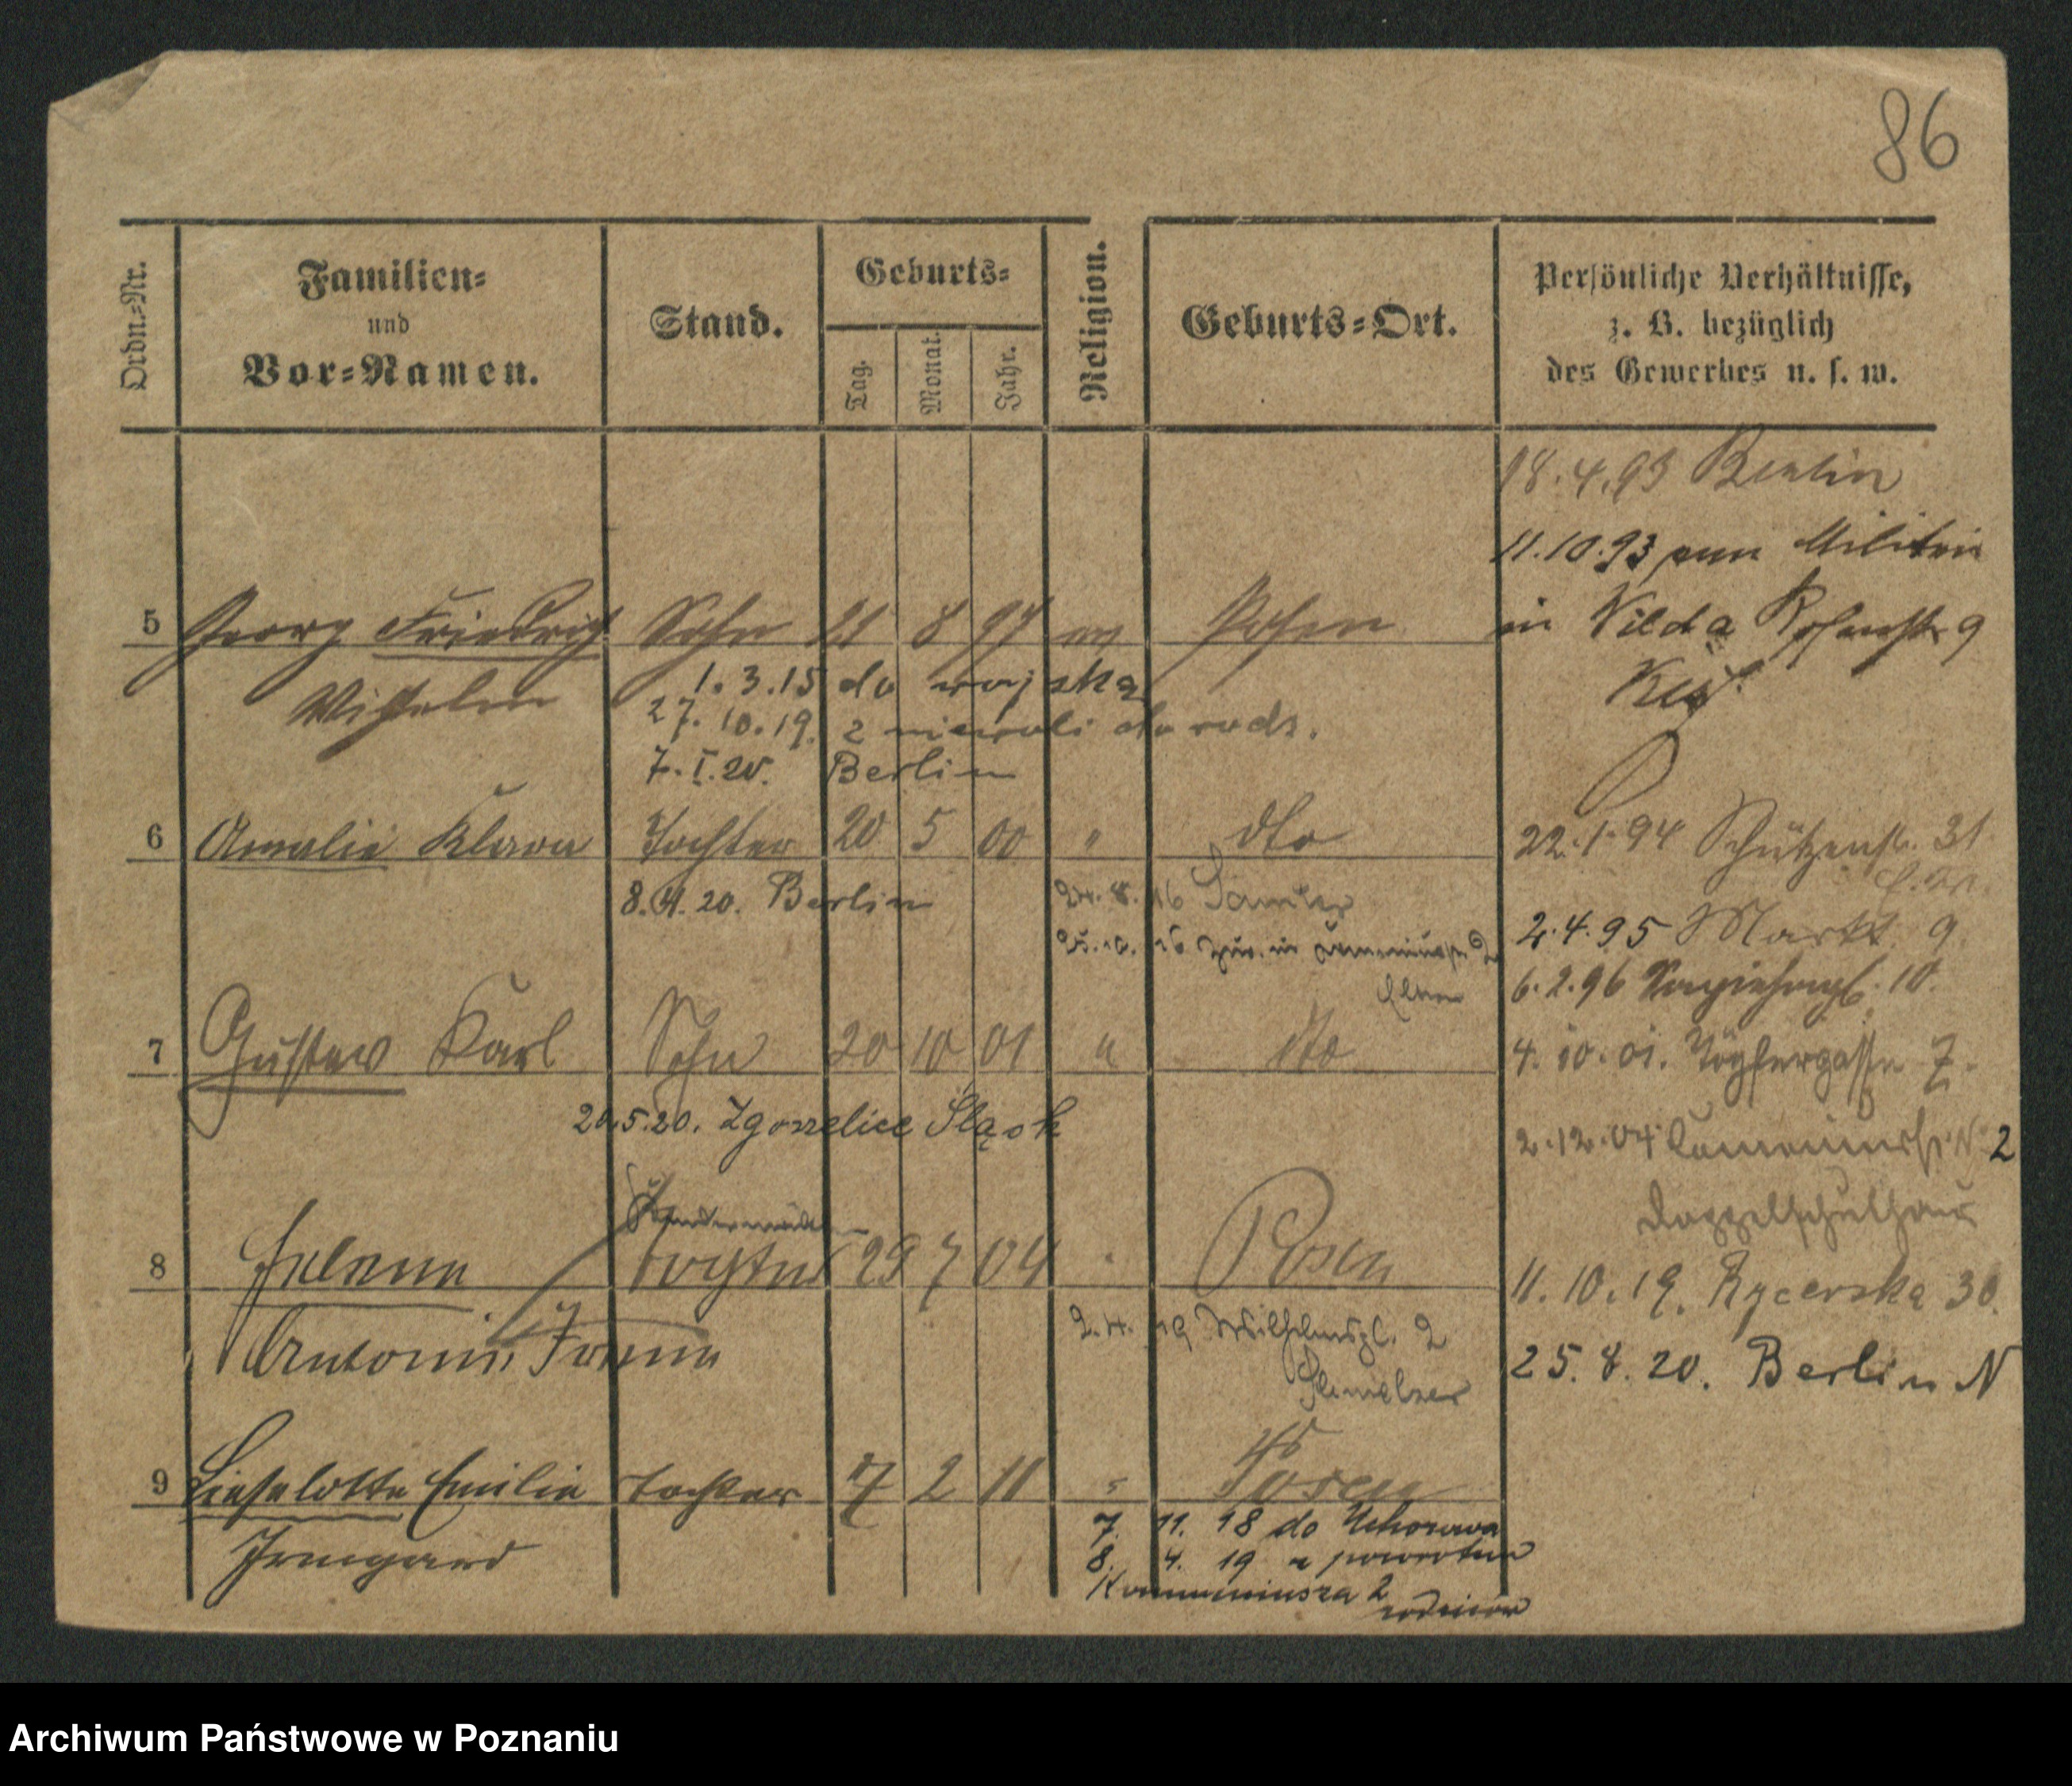 86
Ordn.-Nr.
Familien-
und
Vor-Namen.
Stand.
Geburts-
Tag.
Monat.
Jahr.
Religion.
Geburts-Ort.
Persönliche Verhältnisse,
z. B. bezüglich
des Gewerbes u. s. w.
18.4.93 Berlin
11.10.93 zum Militär
in Wilda Rosenstr 9
5 Georg Friedrich Sohn 21 8 97 ev Posen
Wilhelm
1.3.15 do wojska
27.10.19. z niewoli do rodz.
7.I.20. Berlin
6 Amalie Klara Tochter 20 5 00 " dto
8.4.20. Berlin
24.8.16 Samter
25.10.16 zur. in Comeniusstr 2
Eltern
22.1.94 Schützenstr. 31
2.4.95 Markt 9
6.2.96 10.
7 Gustav Karl Sohn 20 10 01 " dto
20.5.20. Zgorzelice Śląsk
4.10.01. Töpfergasse 7.
2.12.04 Comeniusstr 2
Doppelschulhaus
8 Helene Tochter 29 7 04 " Posen
Antonie Irma
2.4.19 Wilhelmspl. 2
11.10.19. Rycerska 30.
25.8.20. Berlin N
9 Lieselotte Emilie Tochter 17 2 11 " Posen
Irmgard
7. 11. 18 do
8. 4. 19 z powrotem
2
rodziców
Archiwum Państwowe w Poznaniu